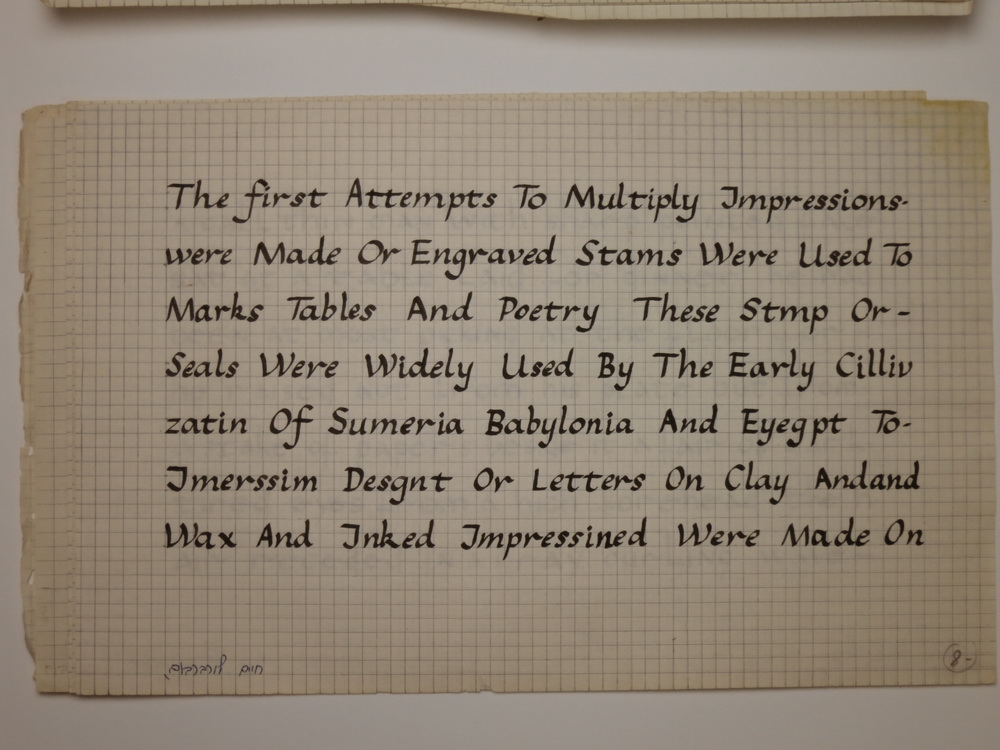 The first Attempts To Multiply Impressions-
were Made Or Engraved Stams Were Used To
Marks Tables And Poetry These Stmp Or-
Seals Were Widely Used By The Early Cilliv
zatin Of Sumeria Babylonia And Eyegpt To-
Imerssim Desgnt Or Letters On Clay Andand
Wax And Inked Impressined Were Made On
חיים
8-